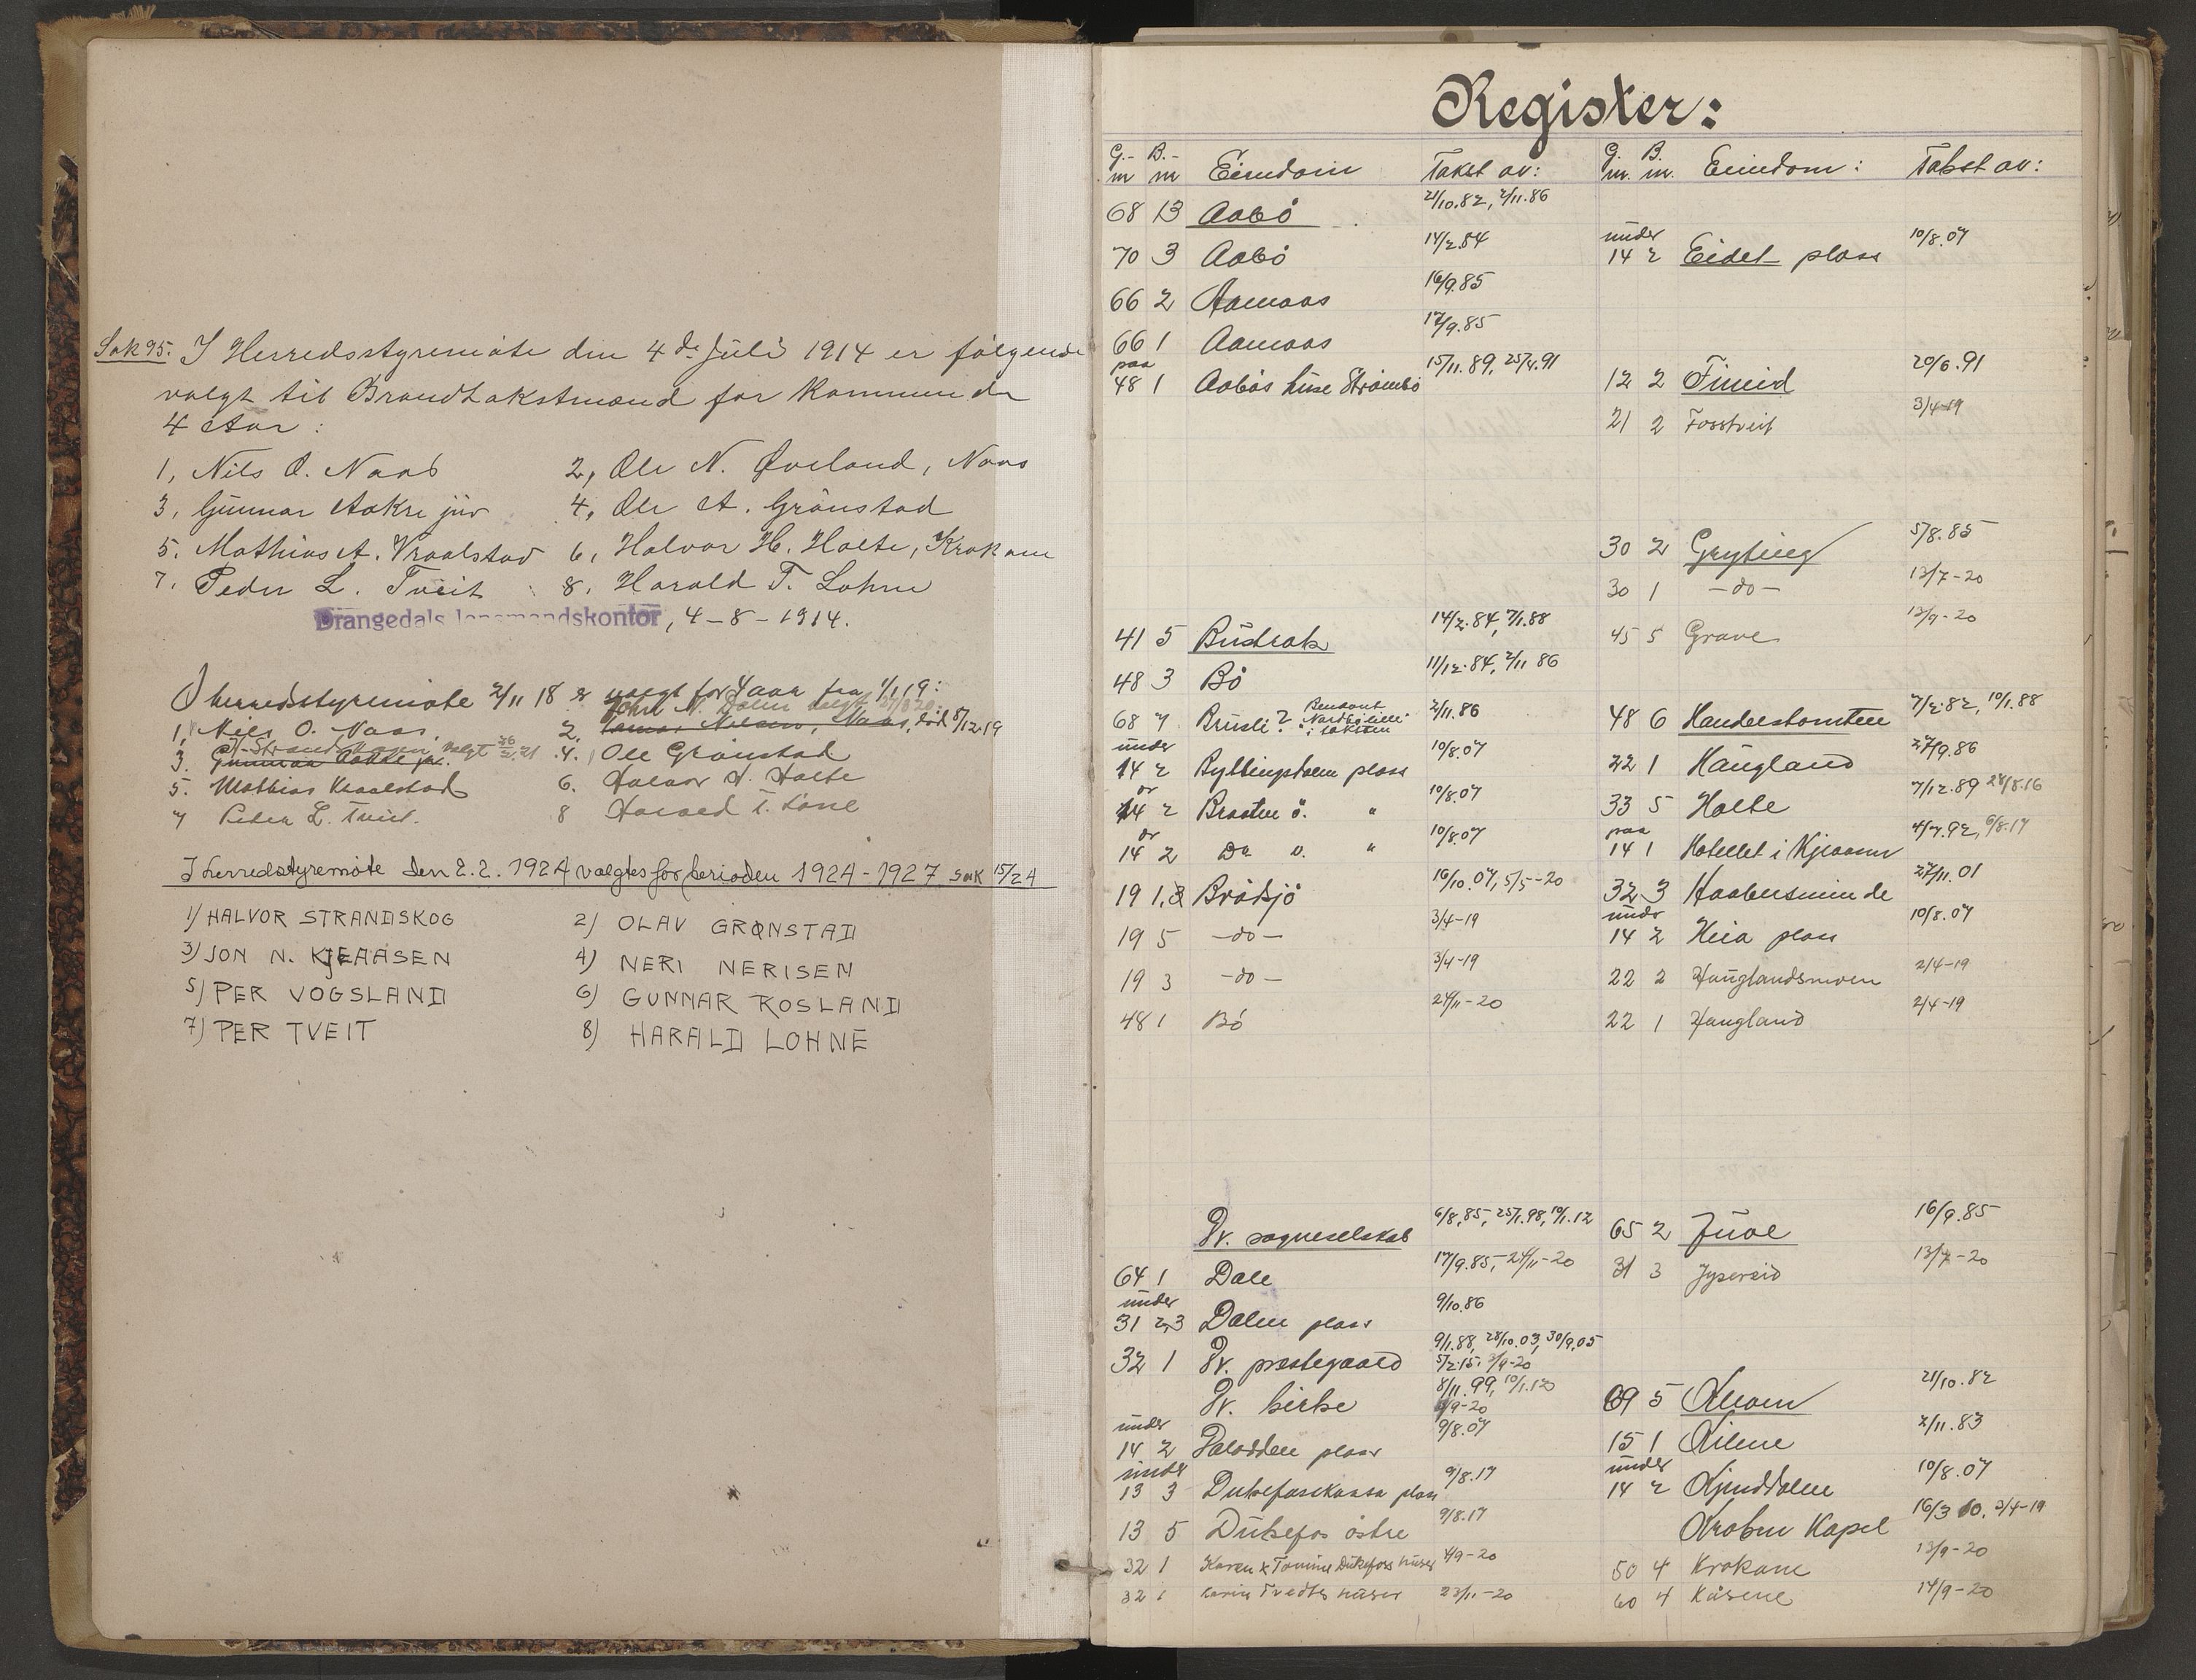 Sak 95. I Herredsstyremöte den 4de Juli 1914 er følgende
valgt til Brandtakstmænd for Kommunen
4 Aar :
1, Nils O. Naas 2, Ole N. Øveland, Naas
3, Gunnar Aakre jūr 4, Ole A. Grönstad
5. Mathias A. Vraalstad 6, Halvor H. Holte, Krokane
7. Peder L. Tveit 8. Harald T. Lohne
Drangedals lensmandskontor, 4-8-1914.
I herredsstyremöte 2/11 18 er valgt for 4 aar fra 1/1 19:
1, Niels O. Naas. 2. død 5/12 19
3. Gunnar Aakre jr. valgt 4. Ole Grönstad
5. Mathias Vraalstad 6. Halvor H. Holte
7 Peder L. Tveit. 8 Harald T. Lone
I herredstyremöte den 2.2. 1924 valgtes for perioden 1924-1927 sak 15/24
1) HALVOR STRANDSKOG 2) OLAV GRØNSTAD
3) JON N. KJEAASEN 4) NERI NERISEN
5) PER VOGSLAND 6) GUNNAR ROSLAND
7) PER TVEIT 8) HARALD LOHNE
Register:
G.- B.- Eiendom Takst av:
68 13 Aabö 21/10.82, 2/11.86
70 3 Aabö 14/2.84
66 2 Aamaas 16/9.85
66 1 Aamaas 17/9.85
paa
48 1 Aabös huse Strömbö 15/11.89, 25/4.91
41 5 Būdrak 14/2.84, 7/1.88
48 3 Bö 11/12.84, 2/11 86
68 7 Brusli? Benævnt
i taksten 2/11.86
under
14 2 plass 10/8.07
or
14 2 Braaten ö. " 10/8.07
or
14 2 Do v. " 10/8.07
19 1,2 Bråtsjö 16/10.07, 5/5-20
19 5 -do- 3/4-19
19 3 -do- 3/4-19
48 1 Bö 24/11-20
Dr. sogneselskab 6/8.85, 25/1.98, 10/1.12
64 1 Dale 17/9.85, 24/11-20
under
31 2,3 Dalen plass 9/10.86
32 1 Dr. prestegaard 9/1.88, 28/10.03, 30/9.05
5/2 15.
Dr. kirke 8/11.99, 10/1.12
under
14 2 Dalodden plass 9/8.07
under
13 3 plass 9/8.17
13 5 Dukefos östre 9/8.17
32 1 Karen & Tomine Dukefoss huser 4/9-20
32 1 Karin Tvedtes huser 23/11-20
G. B. Eiendom: Takst av:
under
14 2 Eidet plass 10/8.07
12 2 Fineid 20/6.91
21 2 Fosstveit 3/4-19
30 2 Gryting 5/8.85
30 1 -do- 13/7-20
45 5 Grave 13/9-20
48 6 Handelstomten 7/2.82, 10/1.88
22 1 Haugland 27/9.86
33 5 Holte 7/12.89 28/8.16
paa
14 1 Hotellet i Kjeaasen 4/7.92, 6/8.17
32 3 Haabesminde 27/11.01
under
14 2 Heia plass 10/8.07
22 2 Hauglandsmoen 2/4-19
22 1 Haugland 2/4-19
65 2 Juve 16/9.85
31 3 13/7-20
69 5 Kleven 21/10.82
15 1 Kilene 2/11.83
under
14 2 Kjenddalen 10/8.07
Kroken Kapel 16/3 10. 3/4-19
50 4 Krokane 13/9-20
60 4 Kåsene 14/9-20